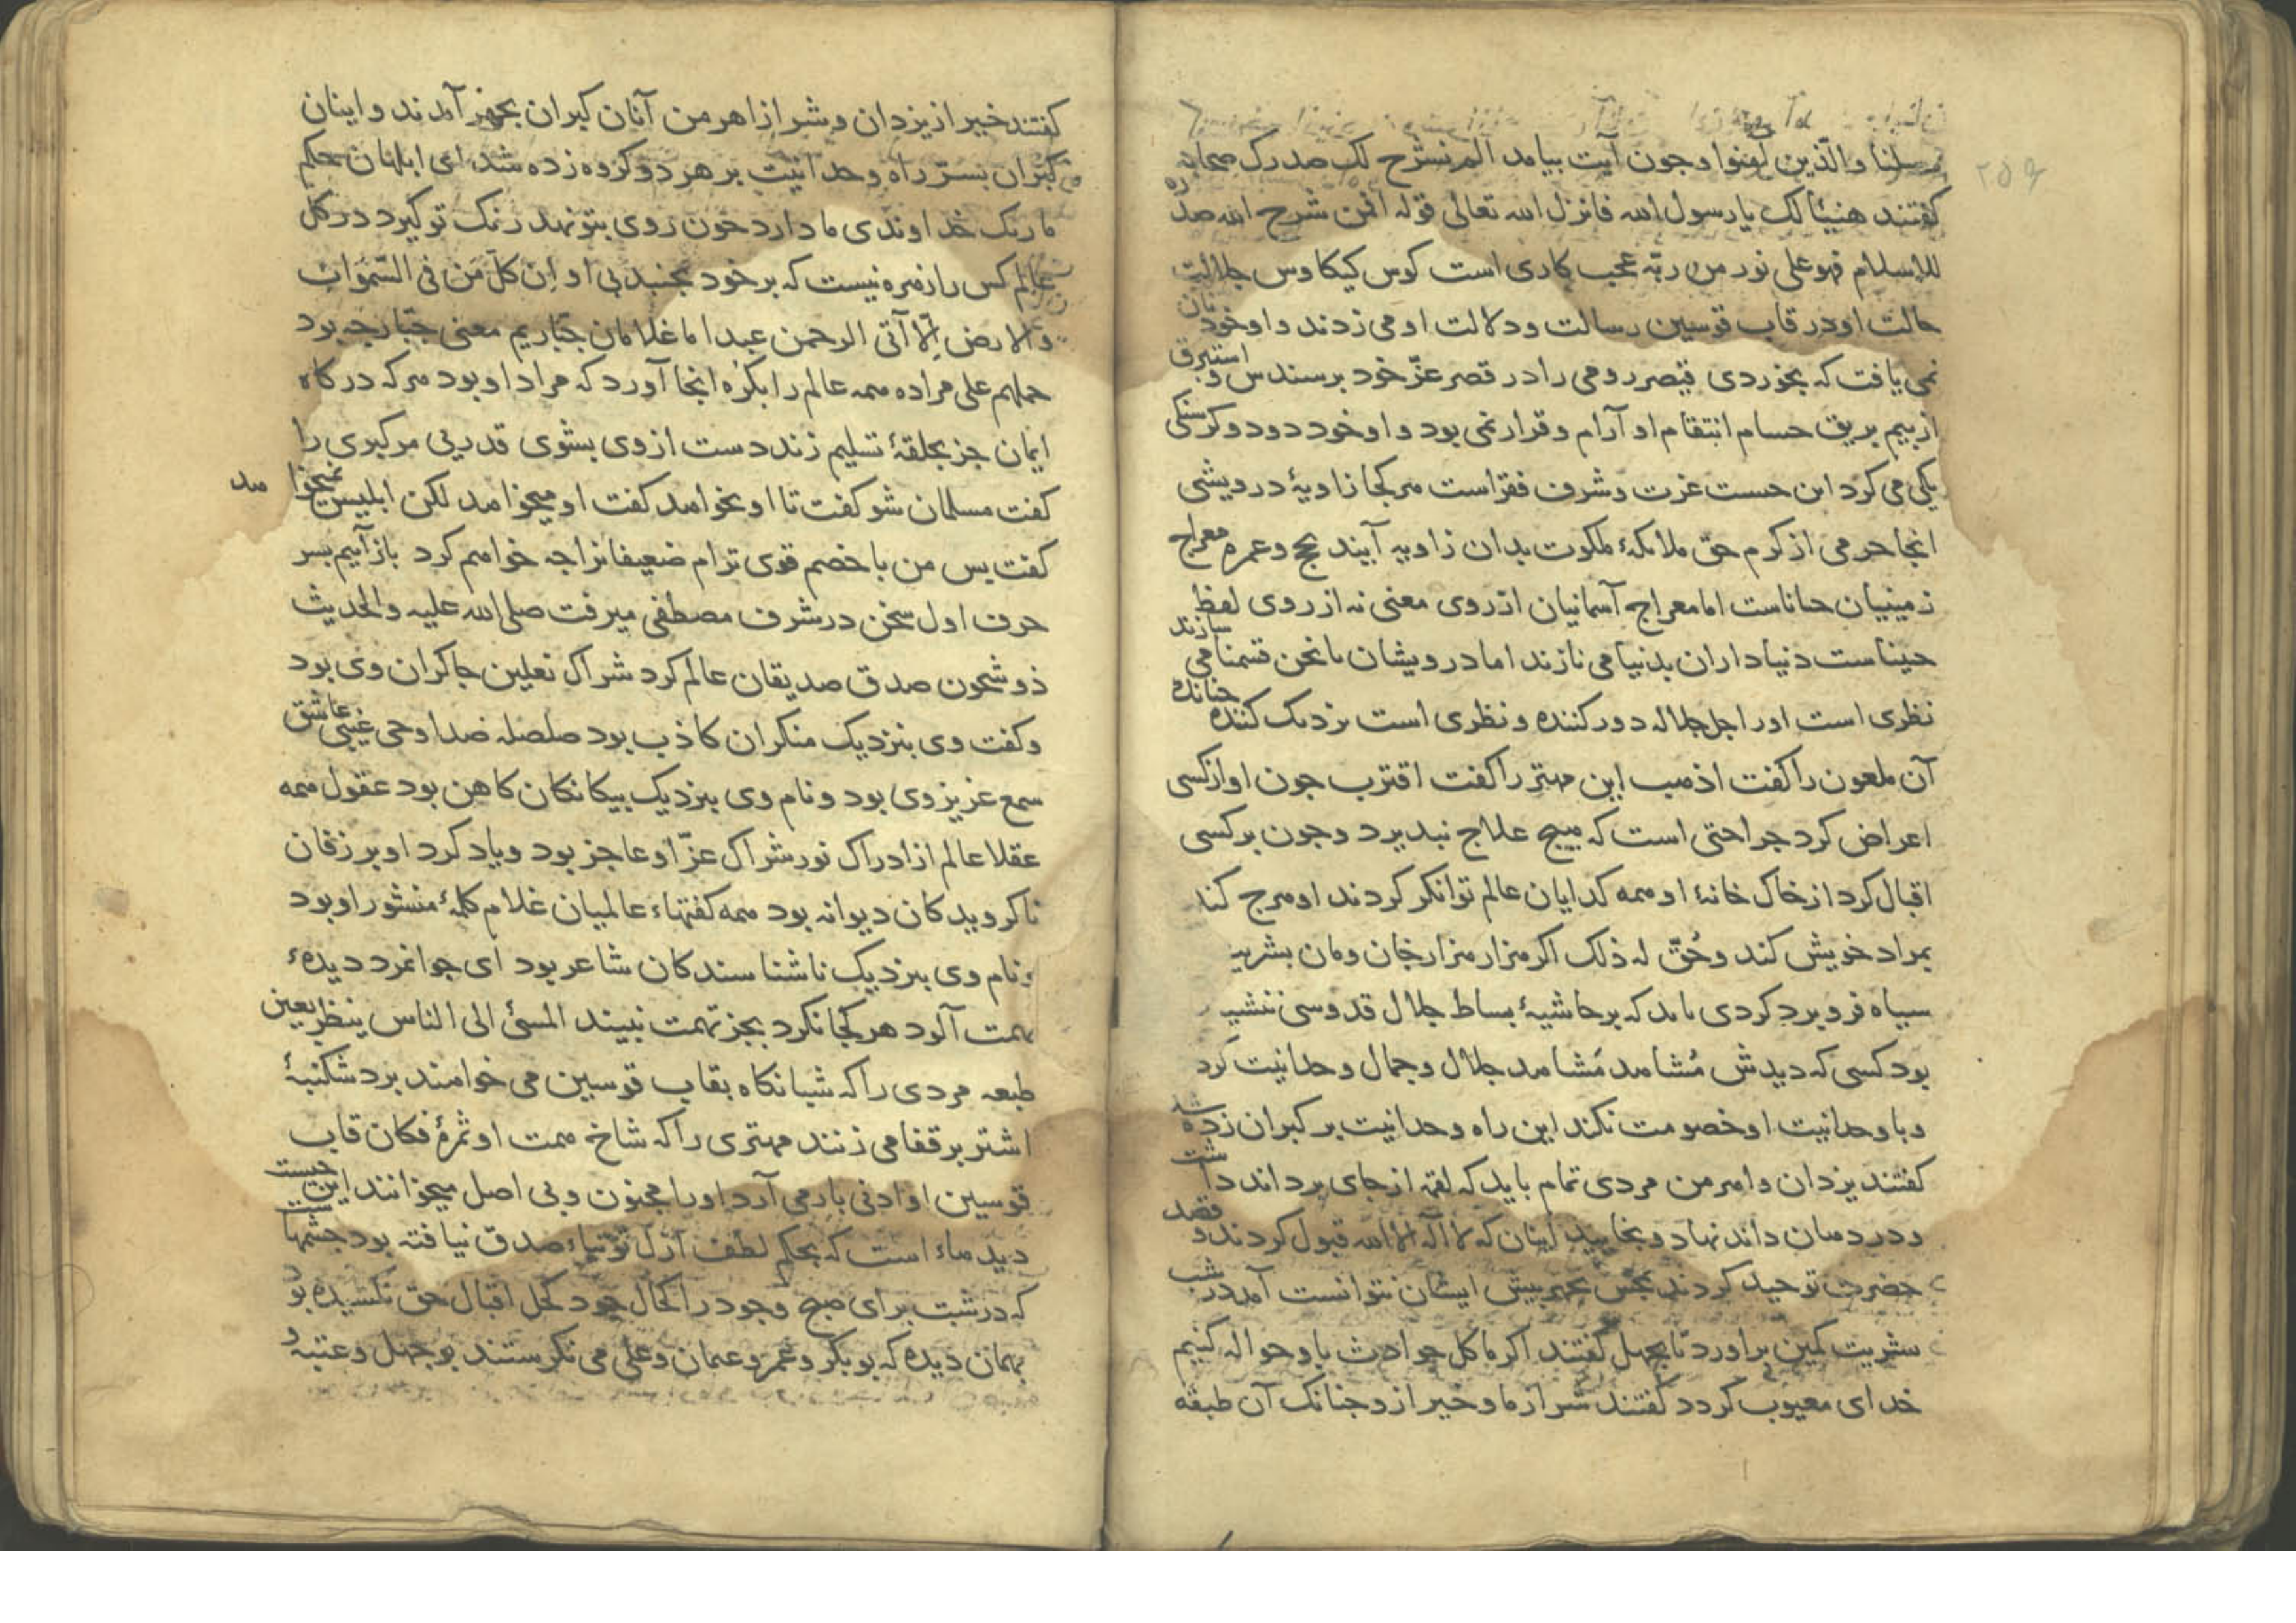 ۲۵۹
رسلنا والّذین آمنوا وجون آیت بیامد الم نشرح لک صدرک صحابه
کفتند هنیئا لک یا رسول الله فانزل الله تعالی قوله افمن شرح الله صدره
للاسلام فهو علی نور من ربّه عجب کاری است کوس کیکاوس جلالت
حالت او در قاب قوسین رسالت ودلالت او می زدند واو خود نان
نمی یافت که بخوردی قیصر رومی را در قصر عزّ خود بر سندس و استبرق
از بیم بریق حسام انتقام او آرام و قرار نمی بود واو خود دو دو کرسنکی
یکی می کرد این حست عزت وشرف فقراست هر کجا زاویهٔ درویشی
انجا حرمی از کرم حقّ ملائکهٔ ملکوت بدان زاویه آیند حج وعمرهٔ معراج
زمینیان حاناست اما معراج آسمانیان از روی معنی نه از روی لفظ
حیناست دنیاداران بدنیا می نازند اما درویشان با نحن قسمنا می سازند
نظری است اور اجل جلاله دور کننده ونظری است نزدیک کننده جنانده
آن ملعون را کفت اذهب این مهتر را کفت اقترب جون او از کسی
اعراض کرد جراحتی است که هیچ علاج نبذیرد وجون بر کسی
اقبال کرد از خاک خانهٔ او همه کدایان عالم توانکر کردند او هرج کند
بمراد خویش کند وحُقّ له ذلک اکر هزار هزار خان ومان بشریه
سیاه فرو برد کردی باید که بر حاشیهٔ بساط جلال قدوسی ننشیـ
بود کسی که دیدش مُشاهد مَشاهد جلال وجمال وحدانیت کرد
وبا وحدانیت او خصومت نکند این راه وحدانیت بر کبران زده شد
کفتند یزدان واهرمن مردی تمام باید که لقمه از جای برداند داشت
ودر دهان داند نهاد وبخایید اینان که لا اله الا الله قبول کردند و قصد
حضرت توحید کردند بیش ایشان نتوانست آمد در شب
شریت کمین براورد تا بجهل کفتند اکر ما کل حوادث باو حواله کنیم
خدای معیوب کردد کفتند شر از ما وخیر از و جنانک آن طبقه
کفتند خیر از یزدان وشر از اهرمن آنان کبران بجهر آمدند واینان
کبران بسرّ راه وحدانیت بر هر دو کروه زده شد ای ابلهان حکم
ما رنک خداوندی ما دارد خون روی بتو نهد رنک تو کیرد در کل
عالم کس را زهره نیست که بر خود بجنبد بی او ان کلّ من فی السّموات
والارض الّا آتی الرحمن عبدا ما غلامان جبّاریم معنی جبّار جه بود
حملهم علی مراده همه عالم را بکره انجا آورد که مراد او بود هر که در کاه
ایمان جز بحلقهٔ تسلیم زند دست از وی بشوی قدریی مر کبری را
کفت مسلمان شو کفت تا او بخواهد کفت او میخواهد لکن ابلیس نمیخواهد
کفت بس من با خصم قوی ترام ضعیفانرا جه خواهم کرد باز آییم بسر
حرف اول سخن در شرف مصطفی میرفت صلی الله علیه والحدیث
ذو شجون صدق صدیقان عالم کرد شراک نعلین جاکران وی بود
وکفت وی بنزدیک منکران کاذب بود صلصله صدا وحی غیبی عاشق
سمع عزیز وی بود ونام وی بنزدیک بیکانکان کاهن بود عقول همه
عقلا عالم از ادراک نور شراک عزّ او عاجز بود ویاد کرد او بر زفان
ناکرویدکان دیوانه بود همه کفتهاء عالمیان غلام کلمهٔ منشور او بود
ونام وی بنزدیک ناشناسندکان شاعر بود ای جوانمرد دیدهٔ
تهمت آلود هر کجا نکرد بجز تهمت نبیند المسئ الی الناس ینظر بعین
طبعه مردی را که شبانکاه بقاب قوسین می خواهند برد شکنبهٔ
اشتر بر قفا می زنند مهتری را که شاخ همت او ثمرهٔ فکان قاب
قوسین او ادنی بار می آرد او را مجنون وبی اصل میخوانند این جیست
دیدهاء است که بحکم لطف ازل توتیاء صدق نیافته بود جشمها ست
که در شبت برای صبح وجود را کحال جود کحل اقبال حق نکشیده بود
بهمان دیده که بوبکر وعمر وعثمان وعلی می نکرستند بوجهل وعتبه و